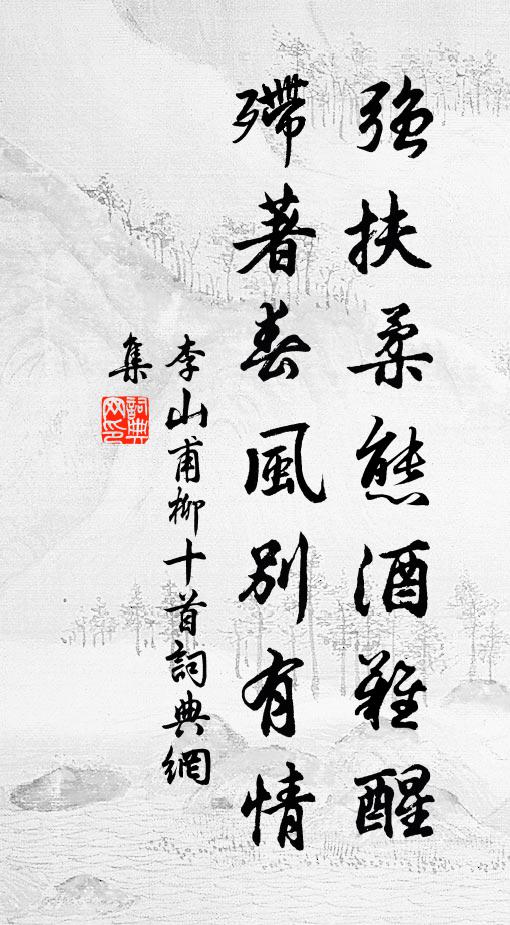 强扶柔態酒難醒
殢著春風別有情
李山甫柳十首詞典網
集
詞典网印